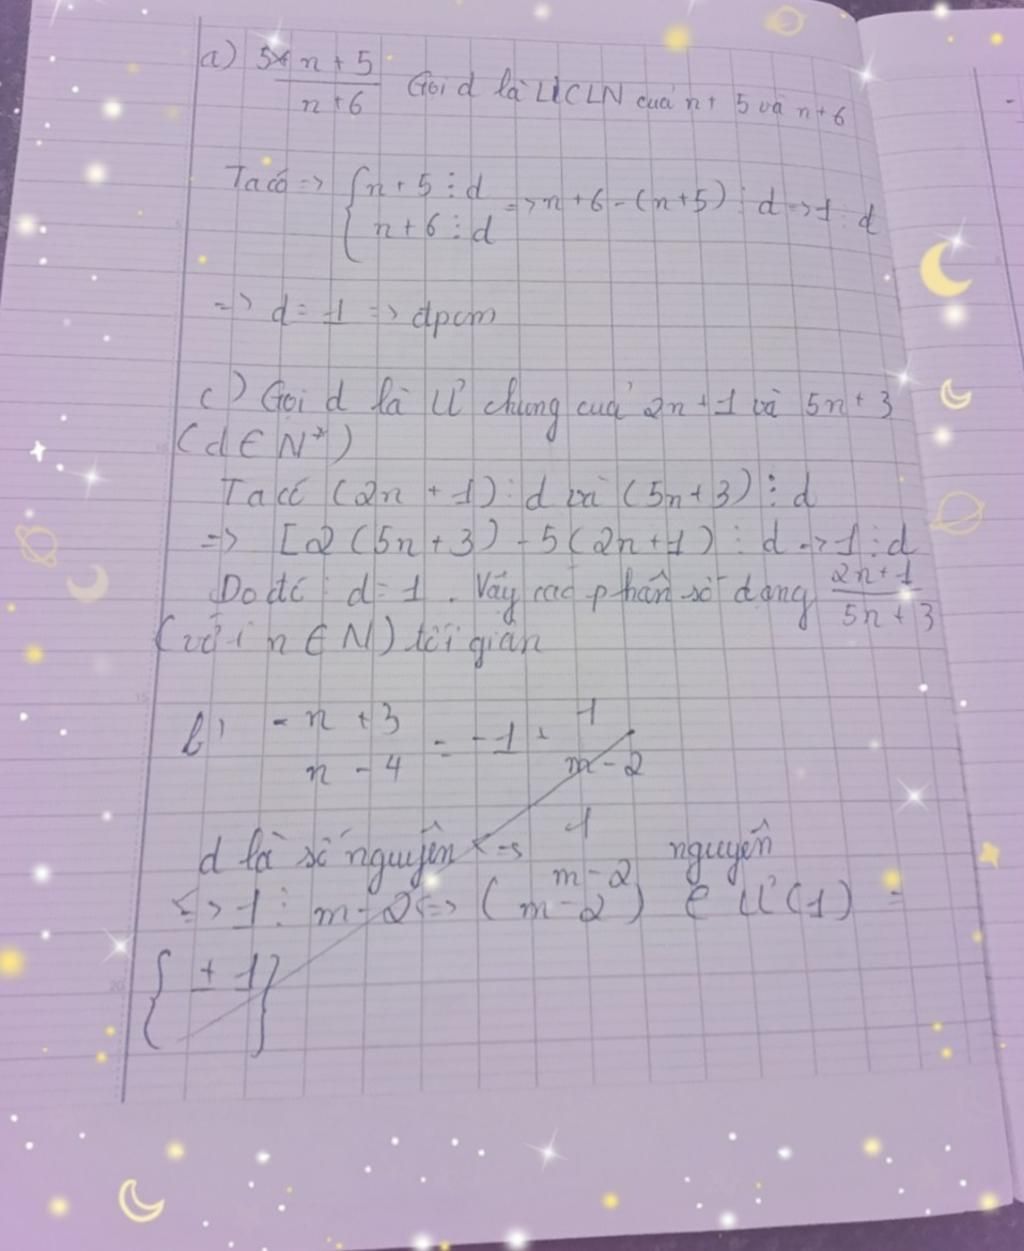 a) n + 5
n + 6
Gọi d là ƯCLN của n + 5 và n + 6
Ta có => { n + 5 ⋮ d
n + 6 ⋮ d
=> n + 6 - (n + 5) ⋮ d => 1 ⋮ d
=> d = 1 => đpcm
c) Gọi d là Ư chung của 2n + 1 và 5n + 3
(d ∈ N*)
Ta có (2n + 1) ⋮ d và (5n + 3) ⋮ d
=> [2 (5n + 3) - 5 (2n + 1) ⋮ d => 1 ⋮ d
Do đó d = 1. Vậy các phân số dạng 2n + 1 / 5n + 3
(với n ∈ N) tối giản
b) - n + 3 / n - 4 = -1 + 1 / m - 2
d là số nguyên <=> 1 / m - 2 nguyên
<=> 1 ⋮ m - 2 <=> (m - 2) ∈ Ư(1) =
{ ± 1 }